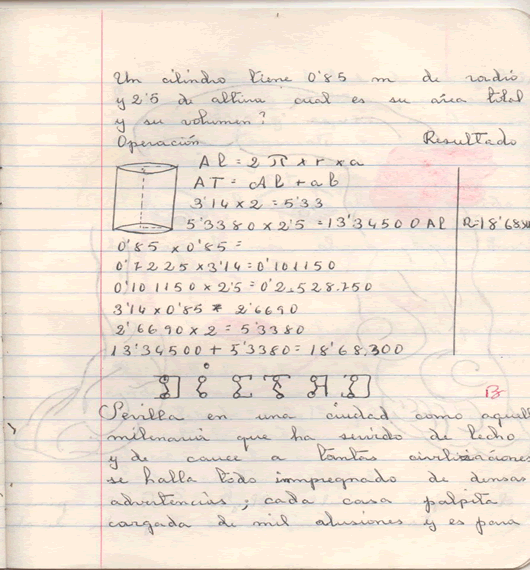 Un cilindro tiene 0'85 m de radio
y 2'5 de altura cual es su area total
y su volumen?
Operación Resultado
Al = 2 π x r x a
AT = Al + ab
3'14 x 2 = 5'33
5'3380 x 2'5 = 13'34500 Al R=18'68300
0'85 x 0'85 =
0'7225 x 3'14 = 0'101150
0'101150 x 2'5 = 0'2.528.750
3'14 x 0'85 = 2'6690
2'6690 x 2 = 5'3380
13'34500 + 5'3380 = 18'68.300
DICTAD
B
Sevilla en una ciudad como aquell
milenaria que ha servido de lecho
y de cauce a tantas civilizaciones
se halla todo impregnado de densas
advertencias; cada casa palpita
cargada de mil alusiones y es para